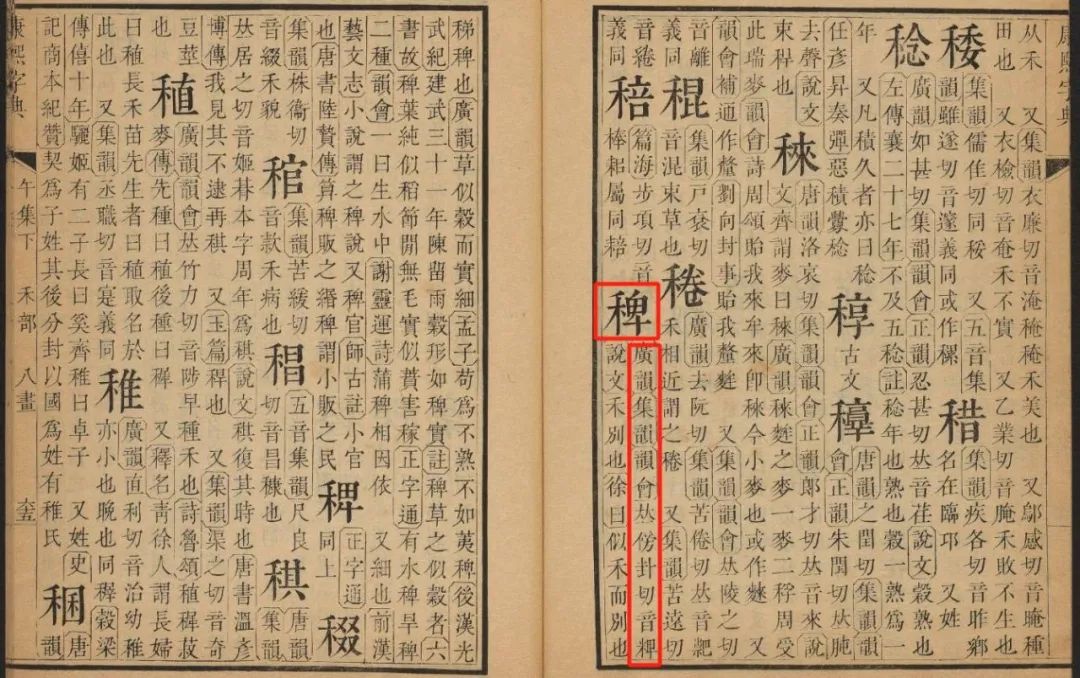 康熙字典
从禾 又集韻衣廉切音淹稖禾美也 又鄔感切音晻種
田也 又衣檢切音奄禾不實 又乙業切音腌禾敗不生也
集韻儒隹切同 又五音集
韻雖遂切音邃義同或作
稓
集韻疾各切音昨鄉
名在臨邛 又姓
稔
廣韻如甚切集韻韻會正韻忍甚切𠀤音荏說文穀熟也
左傳襄二十七年不及五稔註稔年也熟也穀一熟爲一
年 又凡積久者亦曰稔
任彥昇奏彈惡積釁稔
稕
古文
稕
唐韻之閏切集韻韻
會正韻朱閏切𠀤肫
去聲說文
束稈也
秾
唐韻洛哀切集韻韻會正韻郎才切𠀤音來說
文齊謂麥曰秾廣韻秾麰之麥一麥二稃周受
此瑞麥韻會詩周頌貽我來牟來卽秾今小麥也或作 又
韻會補通作釐劉向封事貽我釐麰 又集韻韻會𠀤陵之切
音離
義同
棍
集韻戸袞切
音混束草也
稇
廣韻去阮切集韻苦倦切𠀤音
禾相近謂之稇 又集韻苦遠切
音綣
義同
稖
篇海步項切音
棒耜屬同棓
稗
廣韻集韻韻會𠀤傍卦切音粺
說文禾別也徐曰似禾而別也
稊稗也廣韻草似穀而實細孟子苟爲不熟不如荑稗後漢光
武紀建武三十一年陳留雨穀形如稗實註稗草之似穀者六
書故稗葉純似稻節閒無毛實似薏害稼正字通有水稗旱稗
二種韻會一曰生水中謝靈運詩蒲稗相因依 又細也前漢
藝文志小說謂之稗說又稗官師古註小官
也唐書陸贄傳算稗販之緡稗謂小販之民
稗
正字通
同上
裰
集韻株衞切
音綴禾貌
稍
集韻苦緩切
音款禾病也
稆
五音集韻尺良
切音昌穅也
稘
唐韻
集韻
𠀤居之切音姬朞本字周年爲稘說文稘復其時也唐書溫彥
博傳我見其不逮再稘 又玉篇稈也 又集韻渠之切音奇
豆莖
也
稙
廣韻韻會𠀤竹力切音陟早種禾也詩魯頌稙穉菽
麥傳先種曰稙後種曰穉 又釋名靑徐人謂長婦
曰稙長禾苗先生者曰稙取名於
此也 又集韻丞職切音寔義同
稚
廣韻直利切音治幼稚
亦小也晚也同穉穀梁
傳僖十年驪姬有二子長曰奚齊稚曰卓子 又姓史
記商本紀贊契爲子姓其後分封以國爲姓有稚氏
稛
唐
韻
康熙字典 午集下 禾部 八畫